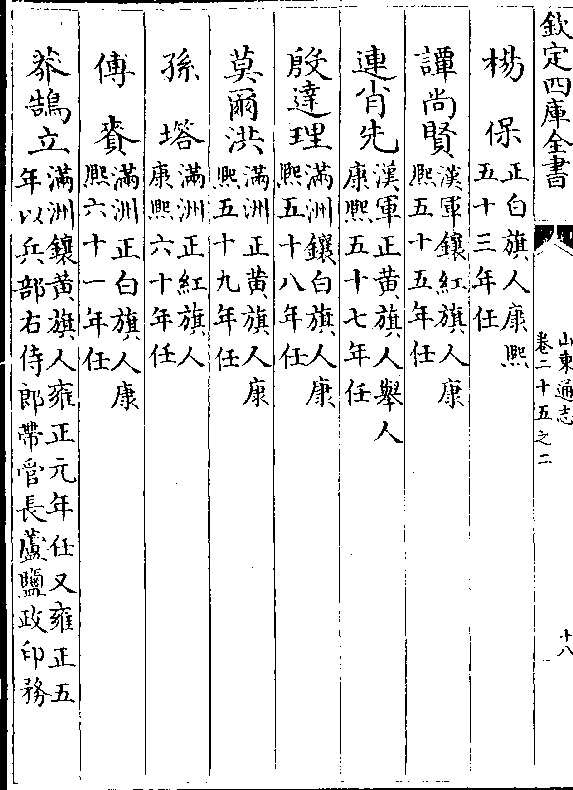 欽定四庫全書
山東通志
卷二十五之二
十八
楊保 正白旗人康熙
五十三年任
譚尚賢 漢軍鑲紅旗人康
熙五十五年任
連肖先 漢軍正黄旗人舉人
康熙五十七年任
殷達理 滿洲鑲白旗人康
熙五十八年任
莫爾洪 滿洲正黄旗人康
熙五十九年任
孫塔 滿洲正紅旗人
康熙六十年任
傅賚 滿洲正白旗人康
熙六十一年任
莽鵠立 滿洲鑲黄旗人雍正元年任又雍正五
年以兵部右侍郎帶管長蘆鹽政印務